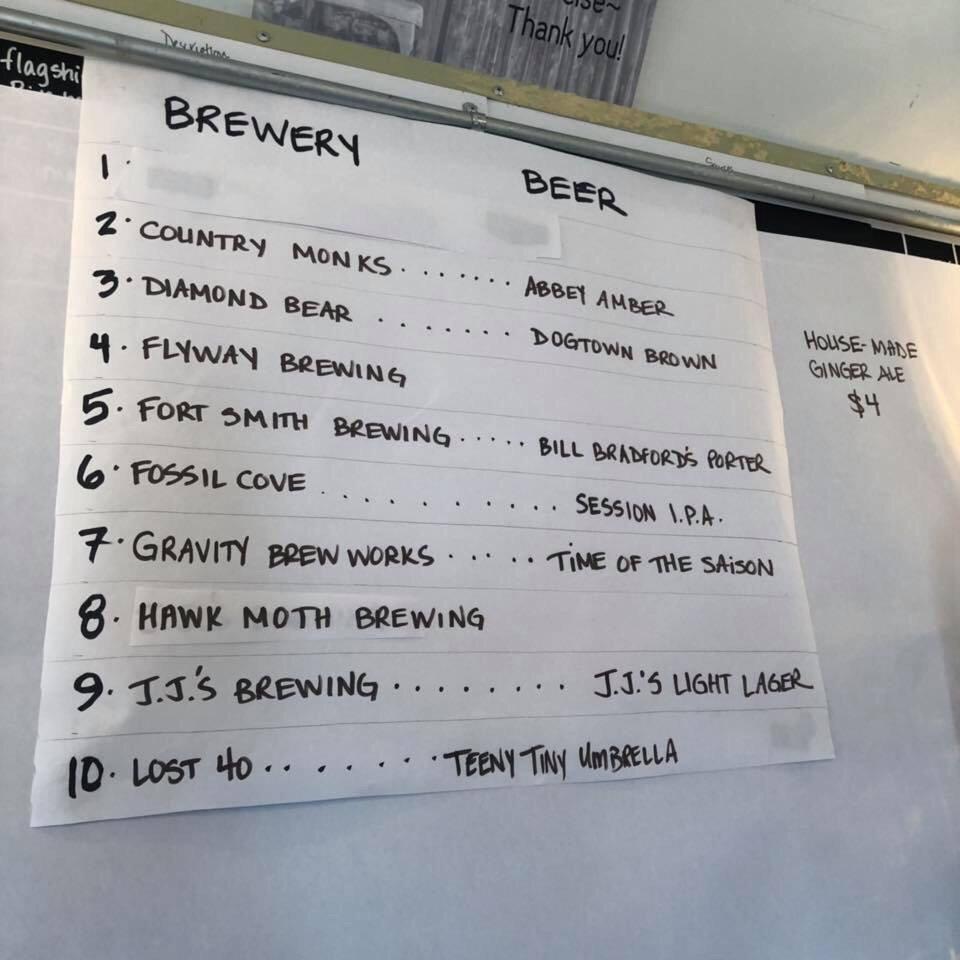 Thank you!
Description
flagshi
BREWERY BEER
1.
2. COUNTRY MONKS....... ABBEY AMBER
3. DIAMOND BEAR ....... DOGTOWN BROWN
4. FLYWAY BREWING
5. FORT SMITH BREWING..... BILL BRADFORD'S PORTER
6. FOSSIL COVE .......... SESSION I.P.A.
7. GRAVITY BREW WORKS ..... TIME OF THE SAISON
8. HAWK MOTH BREWING
9. J.J.'S BREWING ........ J.J.'S LIGHT LAGER
10. LOST 40 ....... TEENY TINY UMBRELLA
HOUSE-MADE
GINGER ALE
$4